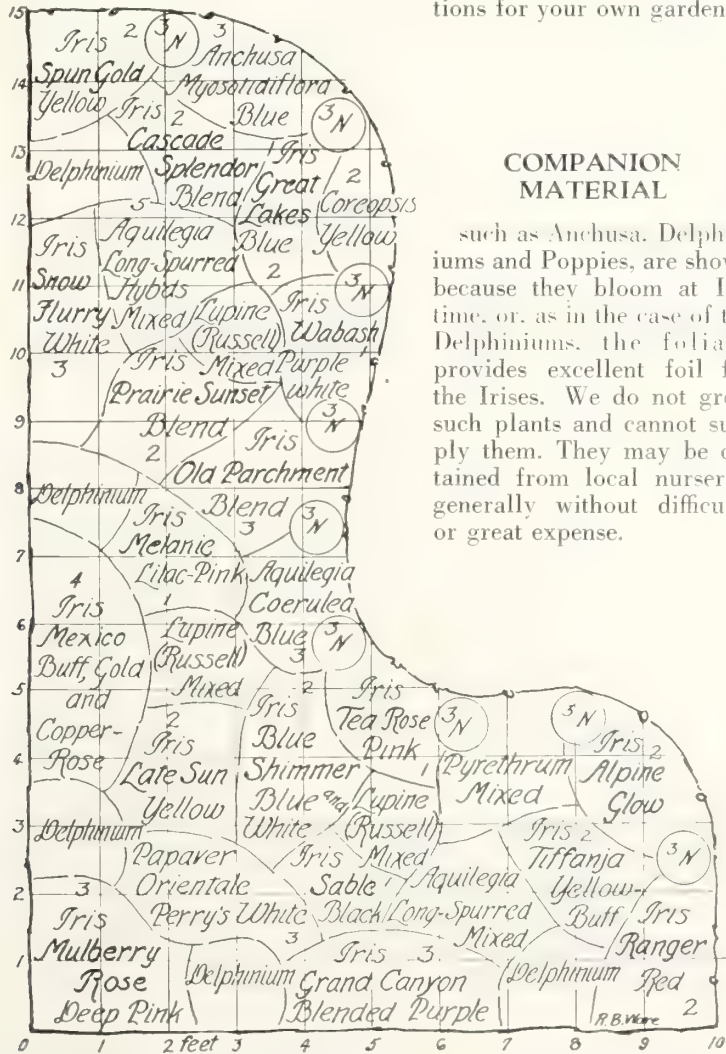 tions for your own garden
COMPANION
MATERIAL
such as Anchusa. Delph
iums and Poppies, are show
because they bloom at I
time. or, as in the case of t
Delphiniums. the folia
provides excellent foil f
the Irises. We do not gro
such plants and cannot su
ply them. They may be o
tained from local nurser
generally without difficu
or great expense.
15
Iris 2
Spun Gold
Yellow
3
N
3
Anchusa
Myosotidiflora
Blue
14
3
N
Iris 2
Cascade
Splendor
Blend
13
Delphinium
Iris
Great
Lakes
Blue
2
2
Coreopsis
Yellow
12
5
Aquilegia
Long-Spurred
Hybds
Mixed
Iris
Snow
Flurry
White
3
11
Lupine
(Russell)
Mixed
Iris
Wabash
Purple
White
3
N
10
Iris
Prairie Sunset
Blend
2
9
3
N
Iris
Old Parchment
Blend
3
8
Delphinium
3
N
Iris
Melanie
Lilac-Pink
1
7
Aquilegia
Coerulea
Blue
3
4
Iris
Mexico
Buff, Gold
and
Copper-
Rose
6
3
N
Lupine
(Russell)
Mixed
5
2
Iris
Blue
Shimmer
Blue and
White
Iris
Tea Rose
Pink
1
3
N
3
N
2
Iris
Late Sun
Yellow
4
Pyrethrum
Mixed
Iris 2
Alpine
Glow
Lupine
(Russell)
Mixed
3
Delphinium
Papaver
Orientale
Perry's White
3
Iris
Sable
Black
1
Aquilegia
Long-Spurred
Mixed
Iris 2
Tiffanja
Yellow-
Buff
3
N
2
3
Iris
Mulberry
Rose
Deep Pink
Iris
Ranger
Red
2
1
Delphinium
Iris 3
Grand Canyon
Blended Purple
Delphinium
R.B.Ware
0 1 2 feet 3 4 5 6 7 8 9 10